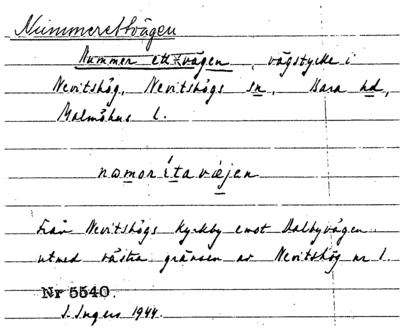 Nummerettvägen
Nummer ett-vägen, vägstycke i
Nevitshög, Nevitshögs sn, Bara hd,
Malmöhus l.
næmor íta væjen
Från Nevitshögs kyrkby emot Dalbyvägen
utmed västra gränsen av Nevitshög nr 1.
Nr 5540.
I. Ingers 1944.